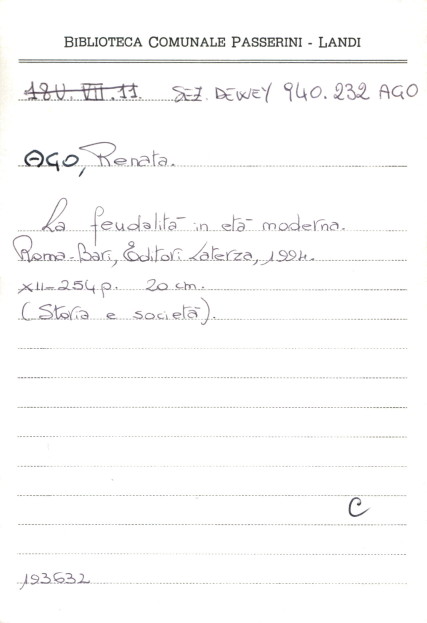 BIBLIOTECA COMUNALE PASSERINI - LANDI
18U. VII. 11. SEZ. DEWEY 940.232 AGO
AGO, Renata.
La feudalità in età moderna.
Roma-Bari, Editori Laterza, 1994.
XII-254 p. 20 cm.
(Storia e società).
C
193632